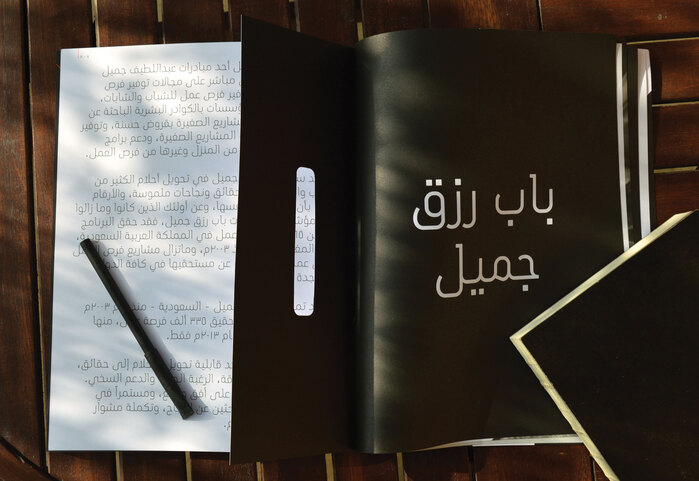 باب رزق
جميل
ل أحد مبادرات عبداللطيف جميل
مباشر على مجالات توفير فرص
فير فرص عمل للشباب والشابات،
ؤسسات بالكوادر البشرية الباحثة عن
شاريع الصغيرة بقروض حسنة، وتوفير
المشاريع الصغيرة، ودعم برامج
من المنزل وغيرها من فرص العمل.
جميل في تحويل أحلام الكثير من
حقائق ونجاحات ملموسة، والأرقام
بأن سها، وعن أولئك الذين كانوا وما زالوا
ت باب رزق جميل، فقد حقق البرنامج
عمل في المملكة العربية السعودية،
٢٠٠٣م، وماتزال مشاريع فرص العمل
عن مستحقيها في كافة
جدة
ميل - السعودية - منذ ٢٠٠٣م
حقيق ٣٣٥ ألف فرصة منها
٢٠١٣م فقط.
قابلية تحويل إلى حقائق،
الرغبة والدعم السخي.
على أفق ومستمراً في
عن وتكملة مشوار